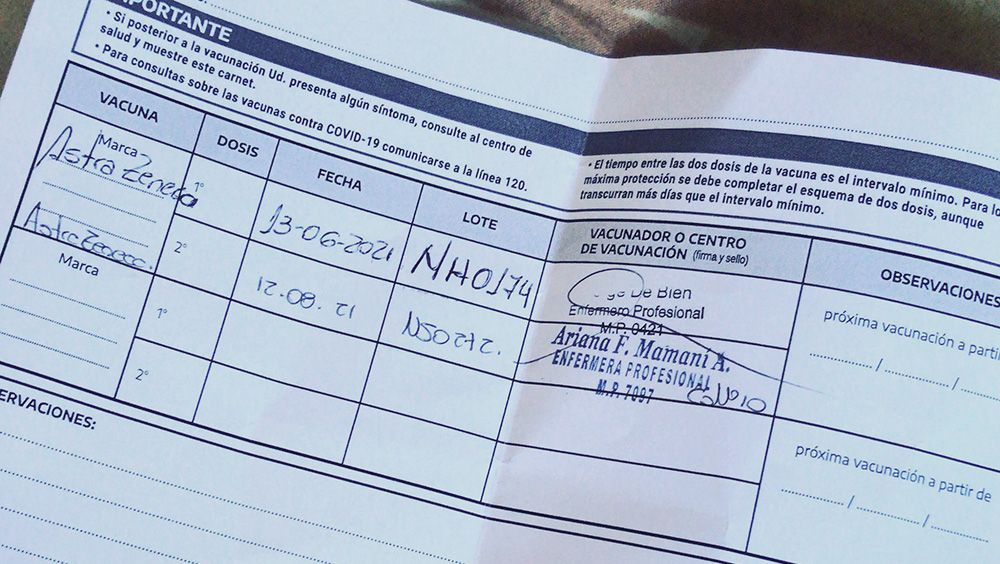 IMPORTANTE
• Si posterior a la vacunación Ud. presenta algún síntoma, consulte al centro de
salud y muestre este carnet.
• Para consultas sobre las vacunas contra COVID-19 comunicarse a la línea 120.
• El tiempo entre las dos dosis de la vacuna es el intervalo mínimo. Para lo
máxima protección se debe completar el esquema de dos dosis, aunque
transcurran más días que el intervalo mínimo.
VACUNA DOSIS FECHA LOTE VACUNADOR O CENTRO
DE VACUNACIÓN (firma y sello) OBSERVACIONES
Marca
AstraZeneca 1° 13-06-2021 NH0174
De Bien
Enfermero Profesional
M.P. 0421
próxima vacunación a partir
....... / ....... / .......
AstraZeneca. 2° 12.08.21
Ariana F. Mamaní A.
ENFERMERA PROFESIONAL
M.P. 7097
Marca
1°
2°
próxima vacunación a partir de
....... / ....... / .......
ERVACIONES: